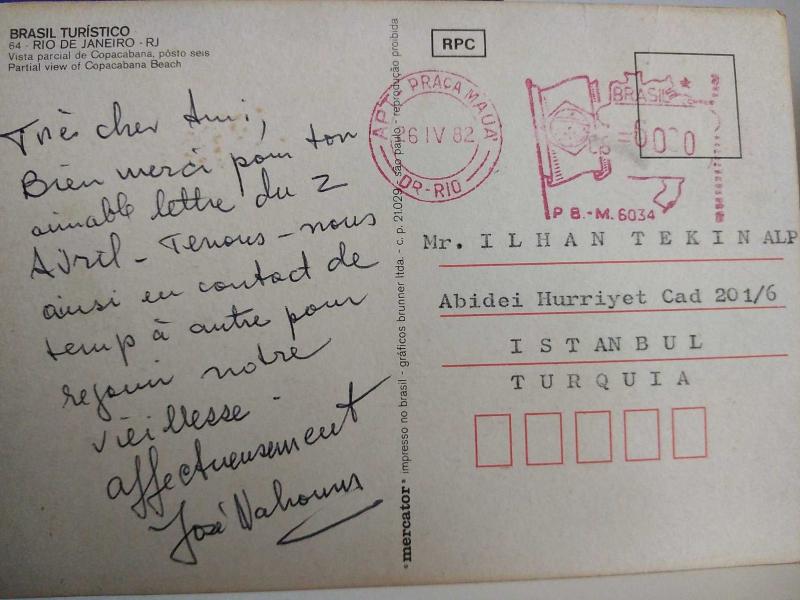 BRASIL TURÍSTICO
64 - RIO DE JANEIRO - RJ
Vista parcial de Copacabana, pôsto seis
Partial view of Copacabana Beach
Très cher Ami,
Bien merci pour ton
aimable lettre du 2
Avril - Tenons-nous
ainsi en contact de
temp à autre pour
rejouir notre
vieillesse.
affectueusement
José Nahoum
mercator impresso no brasil - gráficos brunner ltda. - c. p. 21.029 - são paulo - reprodução proibida
RPC
APT. PRAÇA MAUÁ
16 IV 82
DR-RIO
BRASIL
P B.-M. 6034
Mr. ILHAN TEKINALP
Abidei Hurriyet Cad 201/6
ISTANBUL
TURQUIA